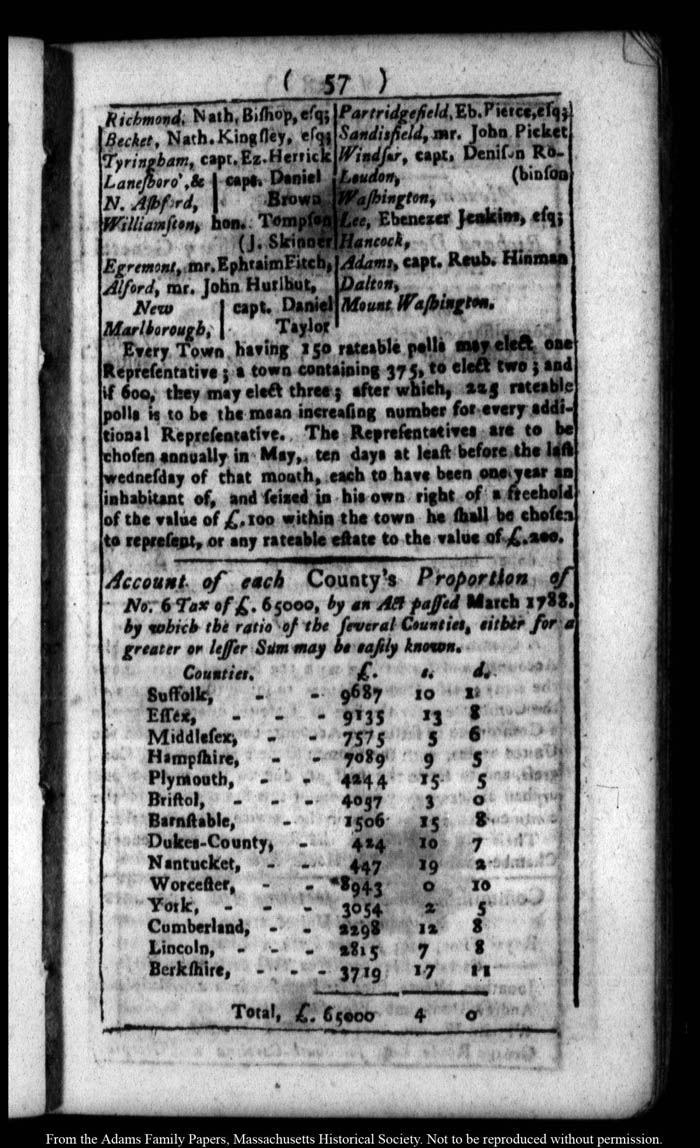 ( 57 )
Richmond, Nath, Biſhop, eſq;
Becket, Nath. Kingſley, eſq;
Tyringham, capt. Ez. Herrick
Laneſboro', & | capt. Daniel
N. Aſhford, | Brown
Williamſton, hon. Tompſon
(J. Skinner
Egremont, mr. Ephraim Fitch,
Alford, mr. John Hurlbut,
New | capt. Daniel
Marlborough, | Taylor
Partridgefield, Eb. Pierce, eſq;
Sandisfield, mr. John Picket
Windſor, capt. Deniſon Ro-
Loudon, (binſon
Waſhington,
Lee, Ebenezer Jenkins, eſq;
Hancock,
Adams, capt. Reub. Hinman
Dalton,
Mount Waſhington.
Every Town having 150 rateable polls may elect one
Repreſentative; a town containing 375, to elect two; and
if 600, they may elect three; after which, 225 rateable
polls is to be the mean increaſing number for every addi-
tional Repreſentative. The Repreſentatives are to be
choſen annually in May, ten days at leaſt before the laſt
wedneſday of that month, each to have been one year an
inhabitant of, and ſeized in his own right of a freehold
of the value of £.100 within the town he ſhall be choſen
to repreſent, or any rateable eſtate to the value of £.200.
Account of each County's Proportion of
No. 6 Tax of £. 65000, by an Act paſſed March 1788.
by which the ratio of the ſeveral Counties, either for a
greater or leſſer Sum may be eaſily known.
Counties. £. s. d.
Suffolk, - - 9687 10 1
Eſſex, - - - 9135 13 8
Middleſex, - - 7575 5 6
Hampſhire, - - 7089 9 5
Plymouth, - - 4244 15 5
Briſtol, - - - 4057 3 0
Barnſtable, - 1506 15 8
Dukes-County, - 424 10 7
Nantucket, - - 447 19 2
Worceſter, - - 8943 0 10
York, - - - 3054 2 5
Cumberland, - - 2298 12 8
Lincoln, - - - 2815 7 8
Berkſhire, - - - 3719 17 11
Total, £. 65000 4 0
From the Adams Family Papers, Massachusetts Historical Society. Not to be reproduced without permission.